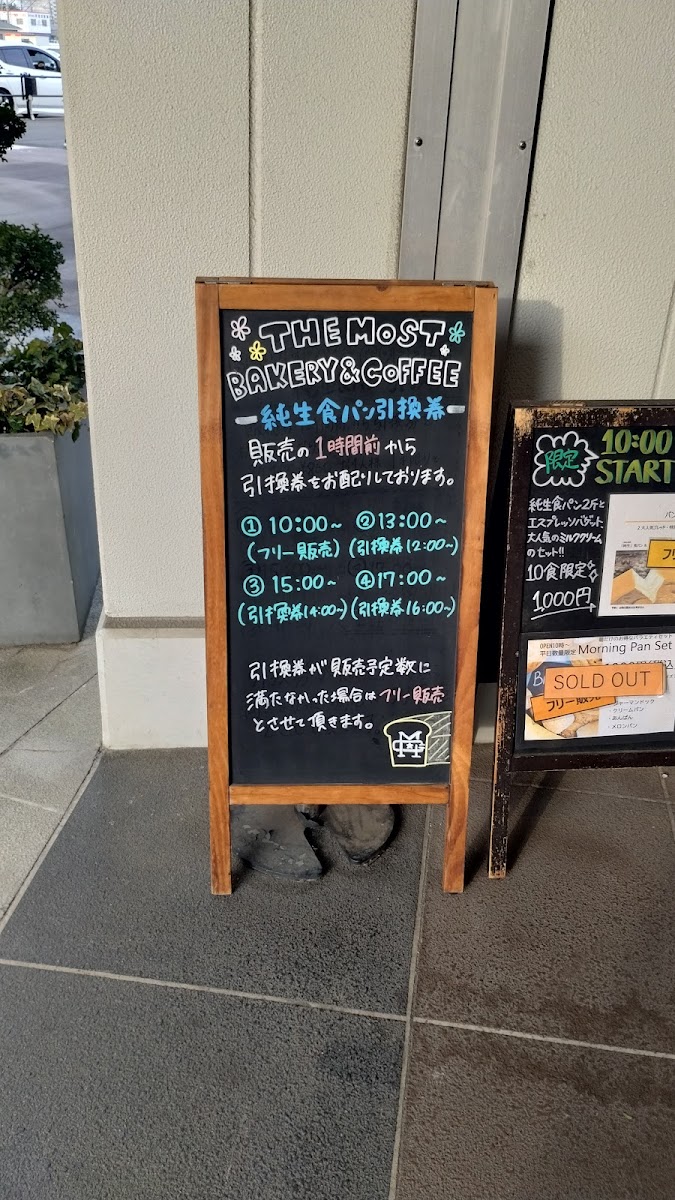 THE MOST
BAKERY & COFFEE
純生食パン引換券
販売の1時間前から
引換券をお配りしております。
① 10:00~ ② 13:00~
(フリー販売) (引換券12:00~)
③ 15:00~ ④ 17:00~
(引換券14:00~) (引換券16:00~)
引換券が販売予定数に
満たなかった場合はフリー販売
とさせて頂きます。
限定
10:00
START
純生食パン2斤と
エスプレッソバゲット
大人気のミルククリーム
のセット!!
10食限定
1,000円
OPEN10時~
平日数量限定
Morning Pan Set
SOLD OUT
フリー販売
・ジャーマンドック
・クリームパン
・あんぱん
・メロンパン